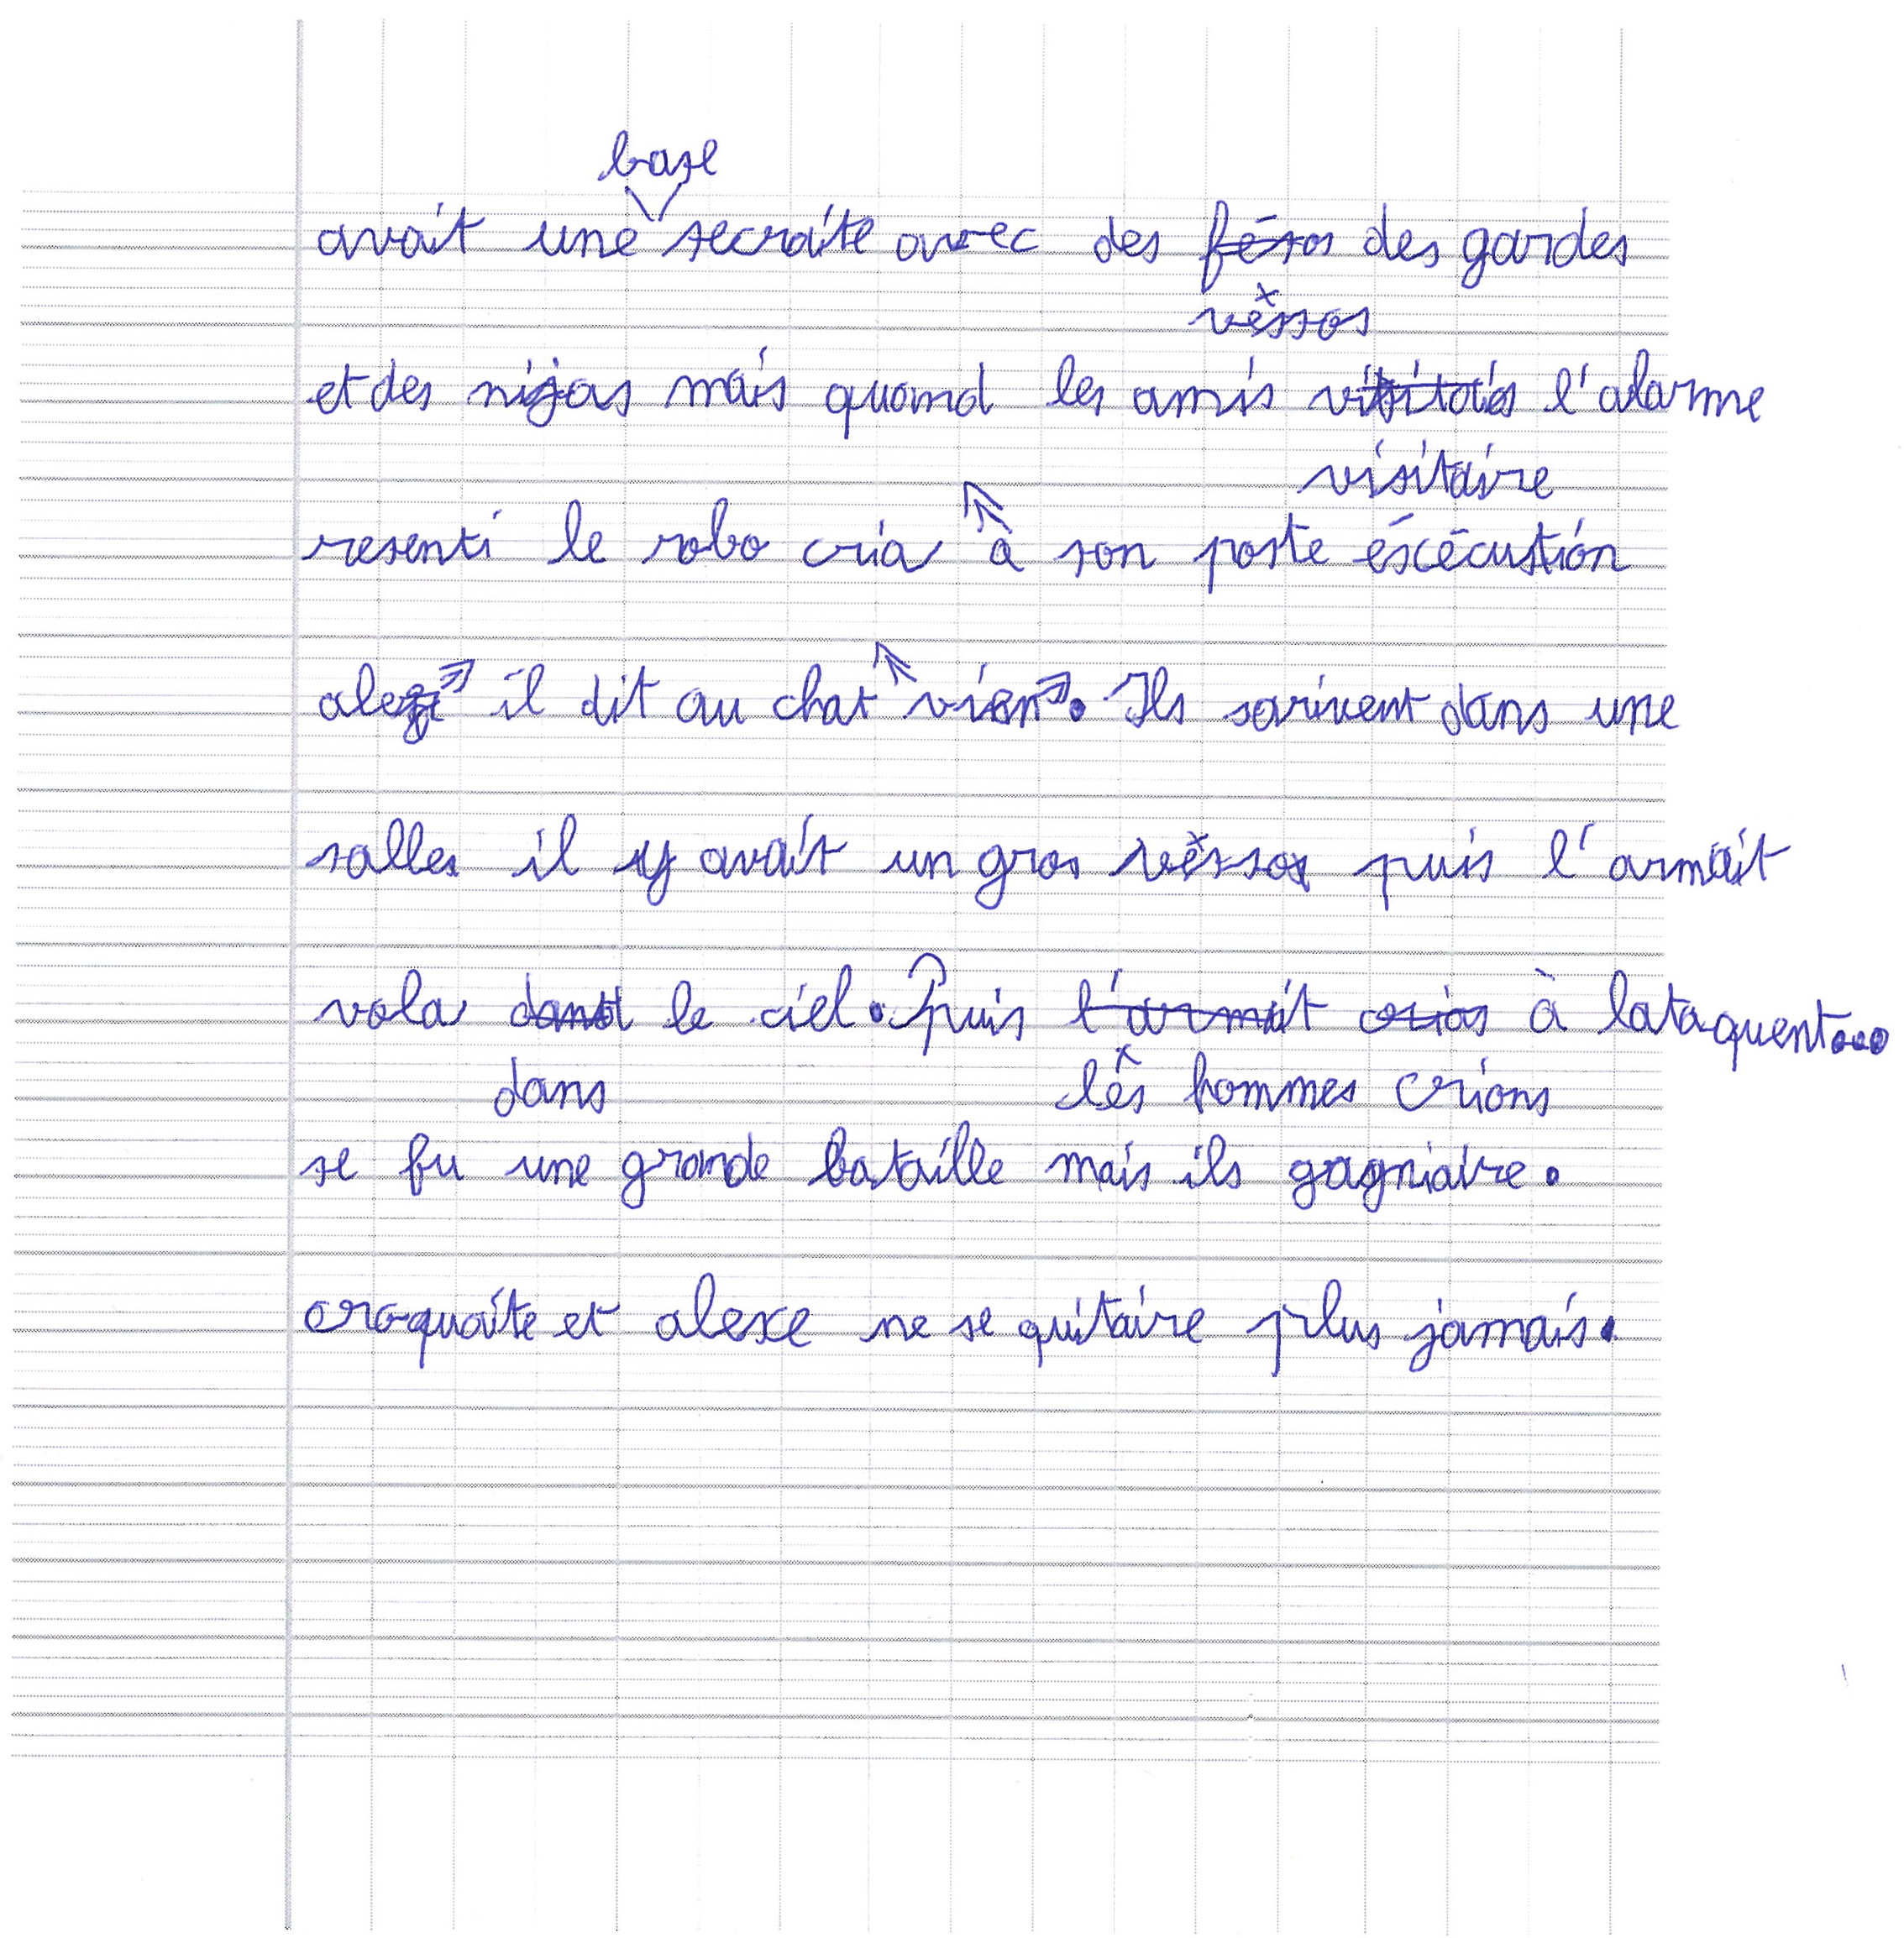 base
avait une secraite avec des féros des gardes
vêssos
et des nijas mais quand les amis l'alarme
visitaire
resenti le robo cria " à son poste éxécustion
alex" il dit au chat "vien". Ils sarivent dans une
salles il y avait un gros vêssos puis l'armait
vola dant le ciel. Puis l'armait crias à lataquent...
dans lês hommes crions
se fu une grande bataille mais ils gagniaire.
croquaite et alexe ne se quitaire plus jamais.